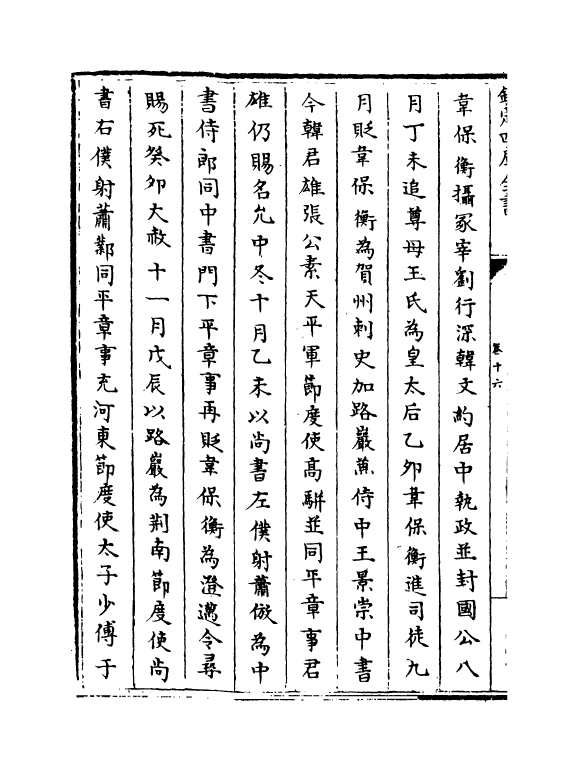 欽定四庫全書
卷十六
韋保衡攝冡宰劉行深韓文約居中執政並封國公八
月丁未追尊母王氏為皇太后乙夘韋保衡進司徒九
月貶韋保衡為賀州刺史加路巖兼侍中王景崇中書
令韓君雄張公素天平軍節度使髙駢並同平章事君
雄仍賜名允中冬十月乙未以尚書左僕射蕭倣為中
書侍郎同中書門下平章事再貶韋保衡為澄邁令尋
賜死癸夘大赦十一月戊辰以路巖為荆南節度使尚
書右僕射蕭鄴同平章事充河東節度使太子少傅于